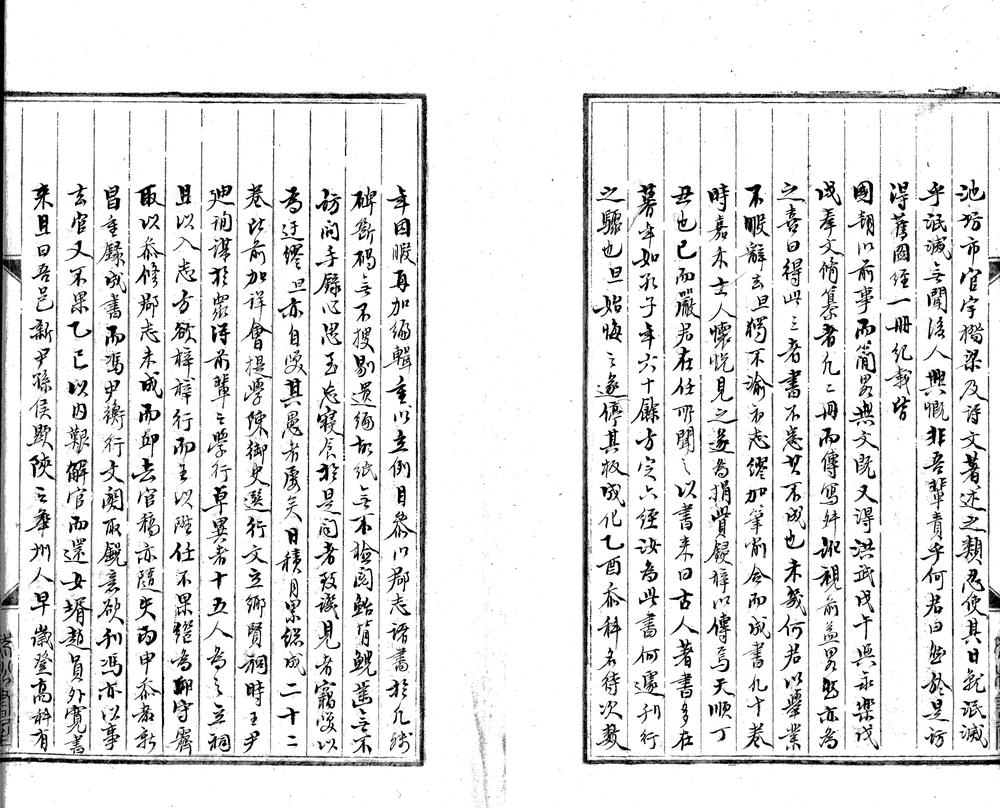 池坊市官宇橋梁及詩文著述之類忍使其日就泯滅
乎泯滅無聞後人興慨非吾輩責乎何君曰然於是訪
得舊圖經一冊紀載皆
國朝以前事而簡畧無文既又得洪武戊午與永樂戊
戌奉文脩纂者凡二冊而傳寫舛視前益畧然亦為
之喜曰得此三者書不患其不成也未幾何君以舉業
不暇辭去旦獨不渝初志繆加筆削合而成書凡十卷
時嘉禾士人懷悅見之遂為捐貲鋟梓以傳焉天順丁
丑也已而嚴君在任所聞之以書來曰古人著書多在
暮年如孔子年六十餘方定六經汝為此書何遽刊行
之驟也旦始悔之遂停其板成化乙酉忝科名待次數
年因暇再加編輯重以立例目叅以郡志諸書於凡殘
碑斷碣無不搜剔遺編故紙無不檢閱鮐背鯢齒無不
訪問手錄心思至忘寢食於是間者致譏見者竊笑以
為迂繆旦亦自笑其愚者屢矣日積月累總成二十二
卷比前加詳會提學陳御史選行文立鄉賢祠時王尹
廸詢謀於眾得前輩之學行卓異者十五人為之立祠
且以入志方欲梓行而王以陞任不果繼為郡守齊
取以叅修郡志未成而邱去官稿亦隨失丙申忝教新
昌重錄成書而馮尹衡行文關取銳意欲刊馮亦以事
去官又不果乙巳以内艱解官而還女壻趙員外寬書
來且曰吾邑新尹孫侯顯陝之華州人早歲登高科有